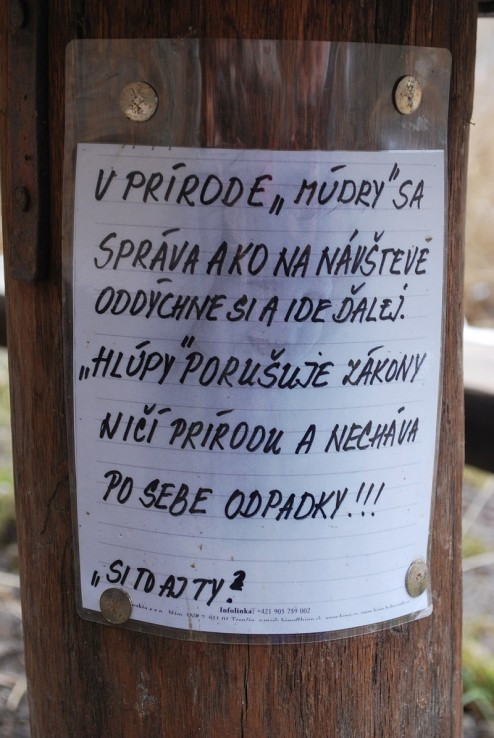 V PRÍRODE „MÚDRY" SA
SPRÁVA AKO NA NÁVŠTEVE
ODDÝCHNE SI A IDE ĎALEJ.
„HLÚPY" PORUŠUJE ZÁKONY
NIČÍ PRÍRODU A NECHÁVA
PO SEBE ODPADKY!!!
„SI TO AJ TY?
Infolinka: +421 905 759 002